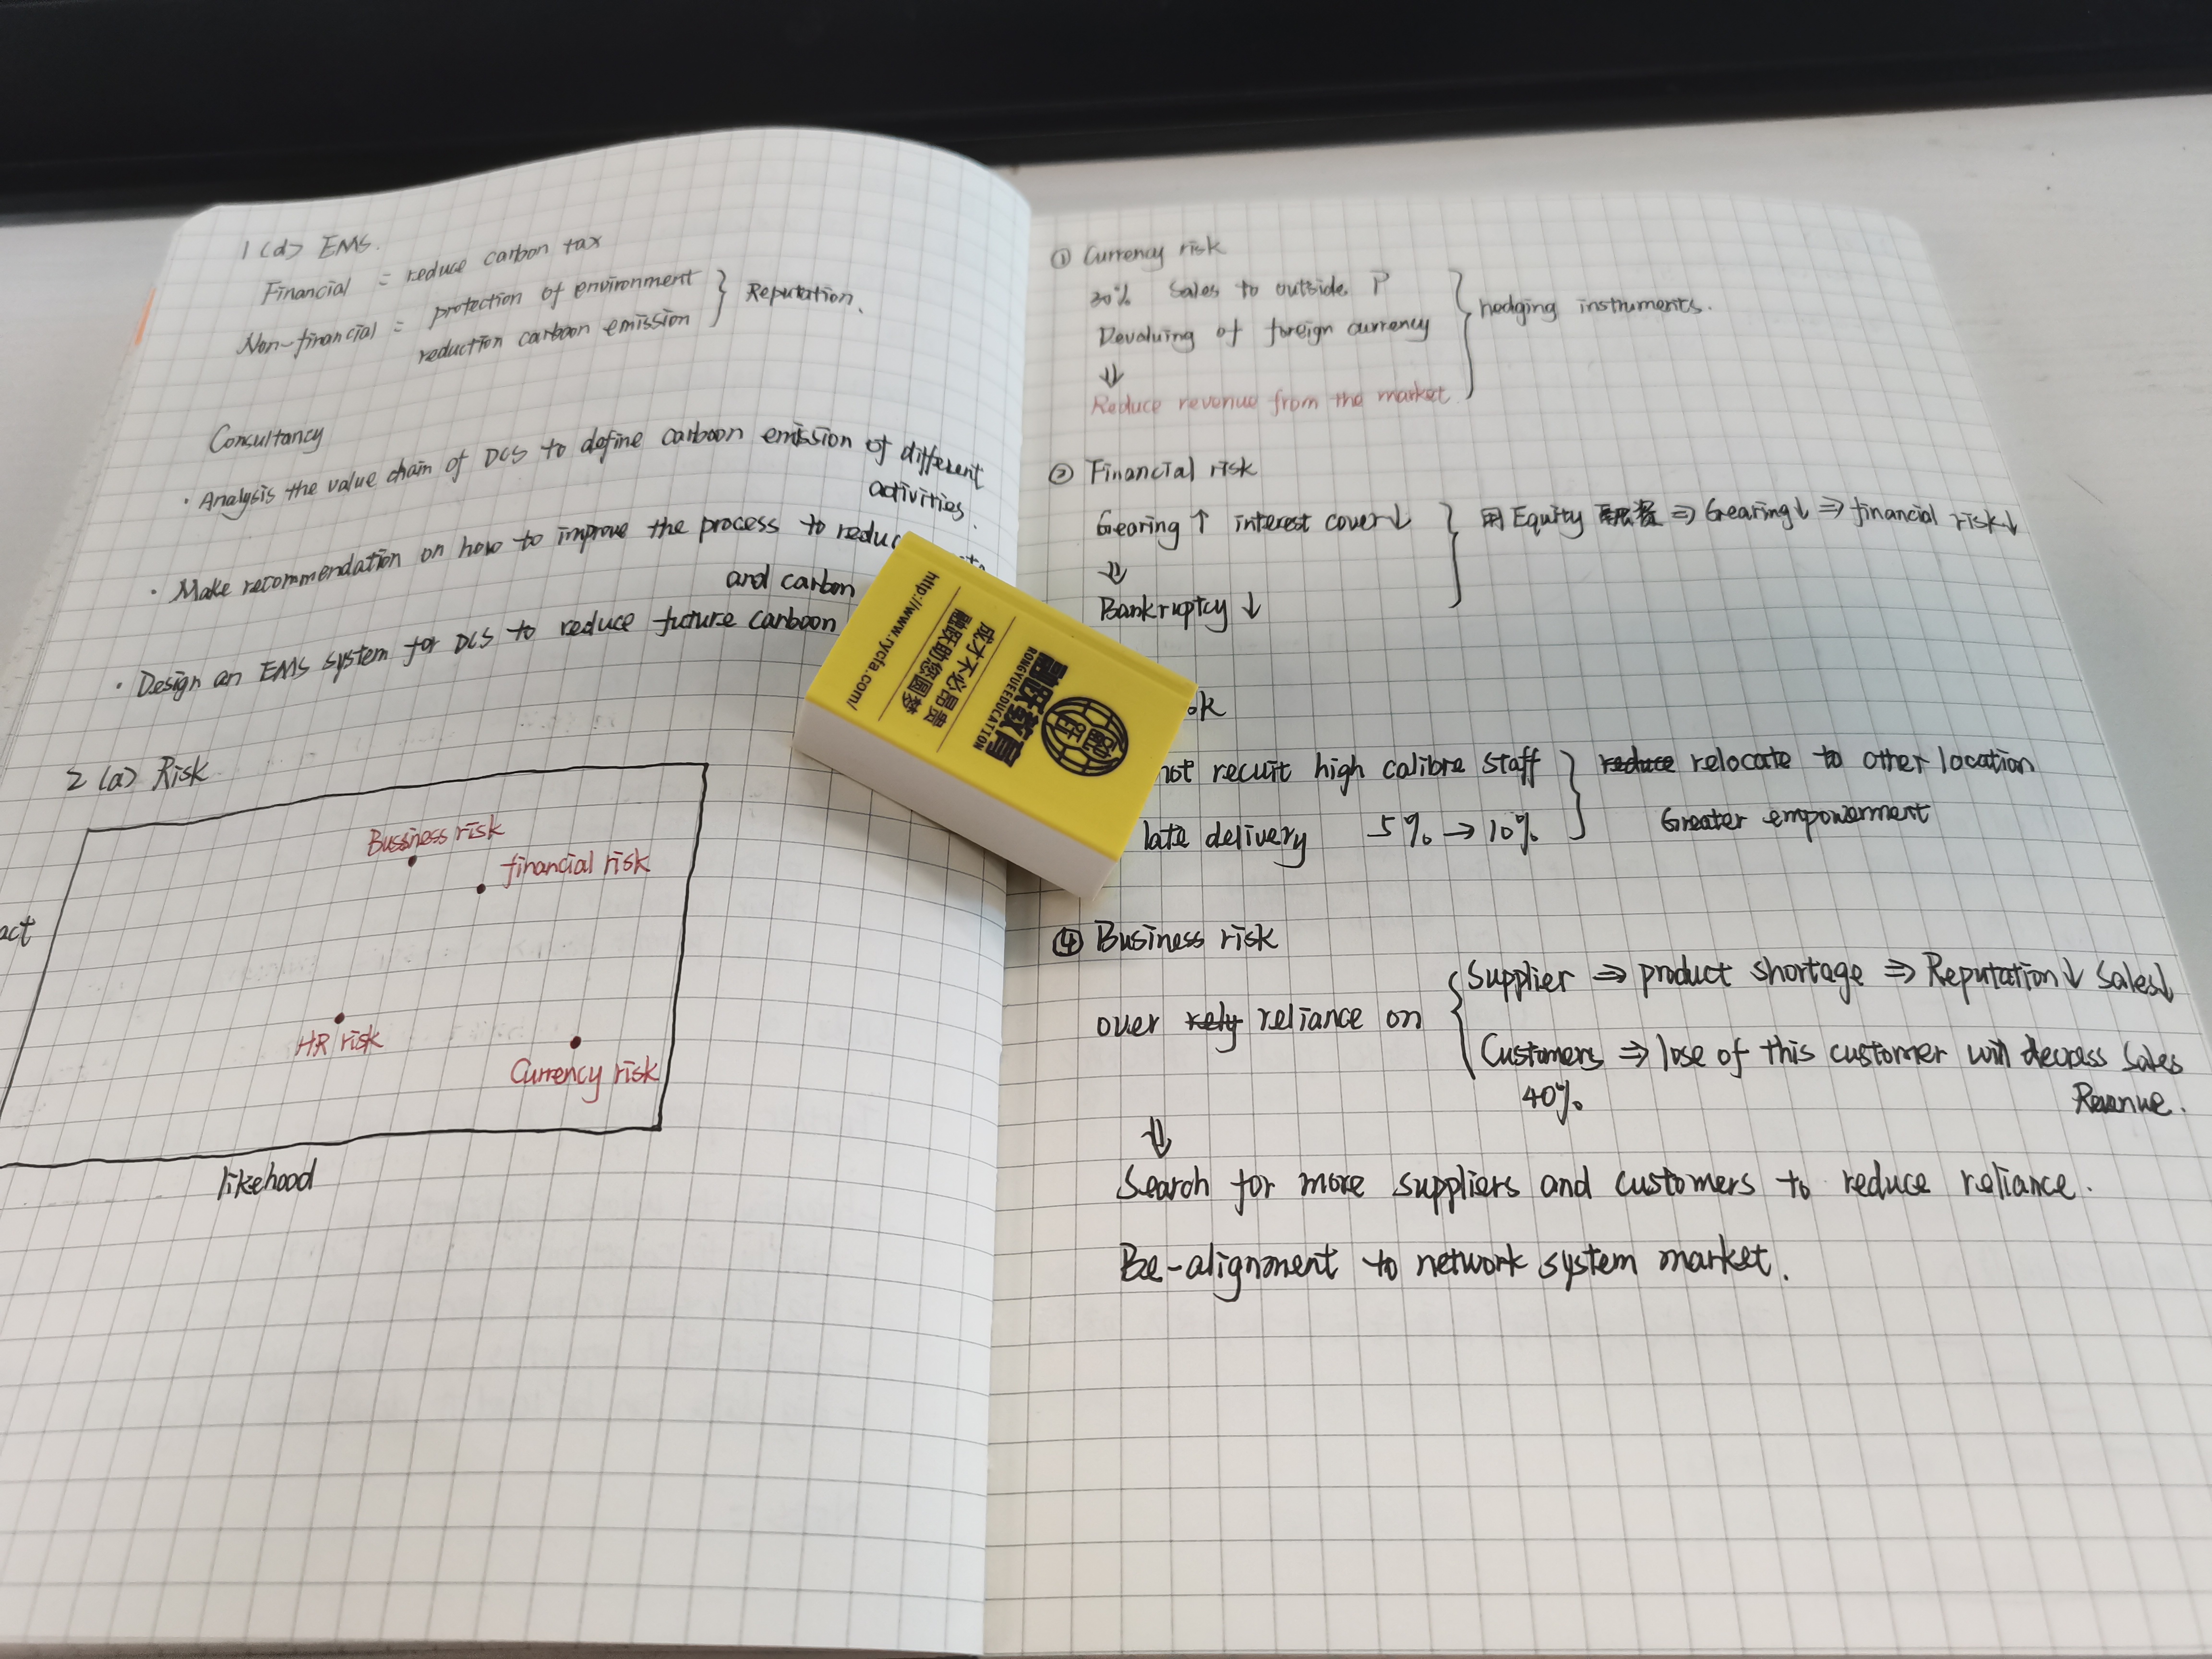 1 (d) EMS.
Financial = reduce carbon tax
Non-financial = protection of environment
reduction carboon emission
Reputation.
Consultancy
· Analysis the value chain of DCS to define carboon emission of different
activities.
· Make recommendation on how to improve the process to reduc
and carbon
· Design an EMS system for DCS to reduce future carboon
2 (a) Risk
Bussiness risk
financial risk
act
HR risk
Currency risk
likehood
① Currency risk
30% Sales to outside P
Devaluing of foreign currency
⇓
Reduce revenue from the market.
hedging instruments.
② Financial risk
Gearing ↑ interest cover↓
用 Equity 融资 ⇒ Gearing↓ ⇒ financial risk↓
⇓
Bankruptcy ↓
sk
not recuit high calibre staff
late delivery 5% → 10%
reduce relocate to other location
Greater empowerment
④ Business risk
over rely reliance on
Supplier ⇒ product shortage ⇒ Reputation↓ Sales↓
Customers ⇒ lose of this customer will decress Sales
40%
Revenue.
⇓
Search for more suppliers and customers to reduce reliance.
Be-alignment to network system market.
融跃教育
RONGYUEEDUCATION
成才不必昂贵
融跃助您圆梦
http://www.rycfa.com/